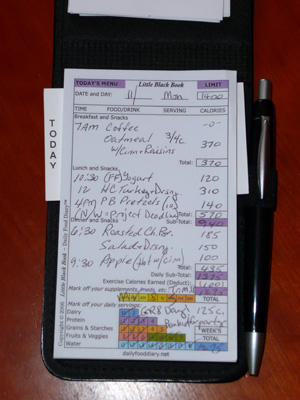 TODAY'S MENU Little Black Book LIMIT
DATE and DAY: 11/ Mon 1400
TIME FOOD/DRINK SERVING CALORIES
Breakfast and Snacks
7AM Coffee -0-
Oatmeal 3/4c 370
w/cinn+Raisins
Total: 370
TODAY
Lunch and Snacks
10:30 (FF) Yogurt 120
12 HC Turkey+Drsng 310
4PM PB Pretzels (10) 140
(N/W=Project Deadline) Total: 570
Dinner and Snacks Sub-Total: 940
6:30 Roasted Ch. Br. 185
Salad+Drsng. 150
9:30 Apple (Hot w/cinn) 100
Total: 435
Daily Sub-Total: 1375
Exercise Calories Earned (Deduct):
Mark off your supplements, meds, etc.
Mark off your daily servings: TOTAL
Dairy
Protein
Grains & Starches WEEK'S
Fruits & Veggies TOTAL
Water
dailyfooddiary.net
Copyright © 2006 Little Black Book ~ Daily Food Diary™